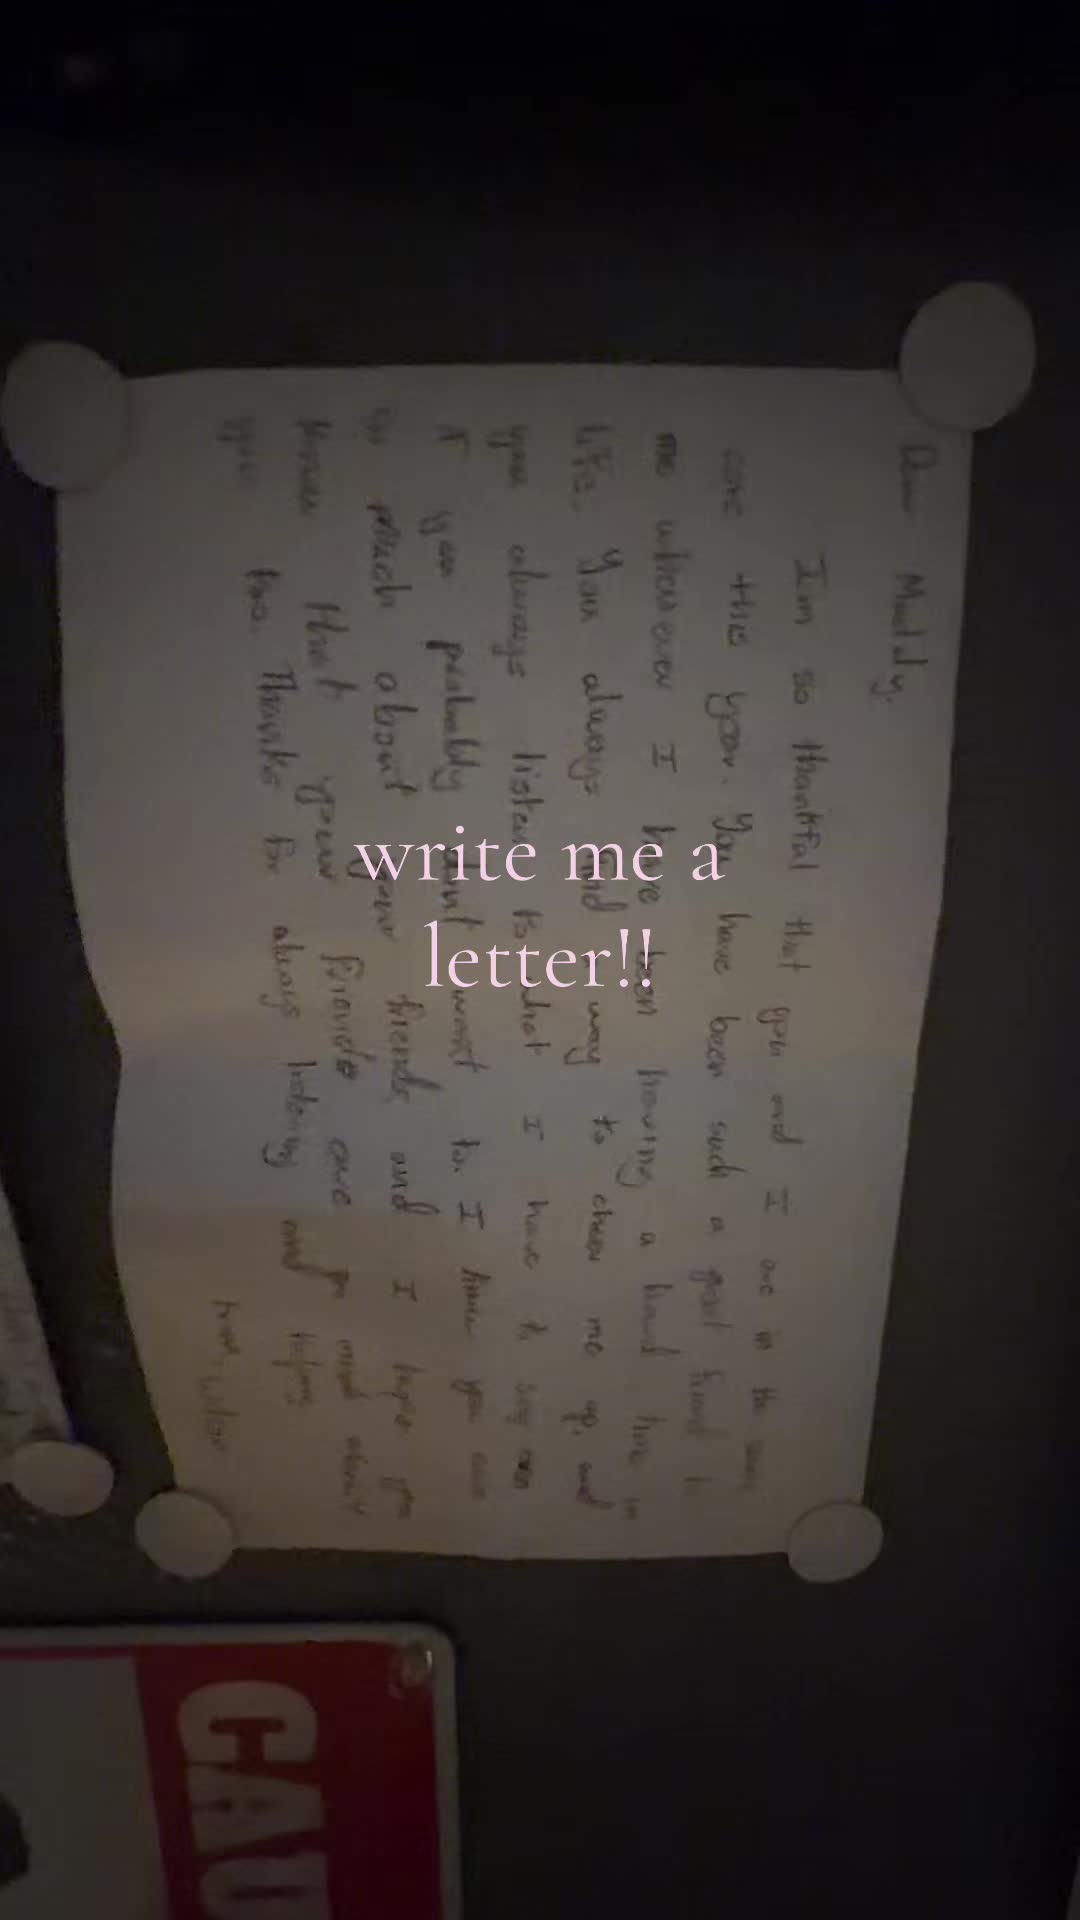 write me a
letter!!
Dear Maddy,
I'm so thankful that you and I are in the same
care this year. You have been such a great friend to
me whenever I have been having a hard time in
life. You always find a way to cheer me up, and
you always listen to what I have to say even
if you probably don't want to. I know you care
so much about your friends, and I hope you
know that your friends care so much about
you too. Thanks for always listening and helping
from, Willow
CAU